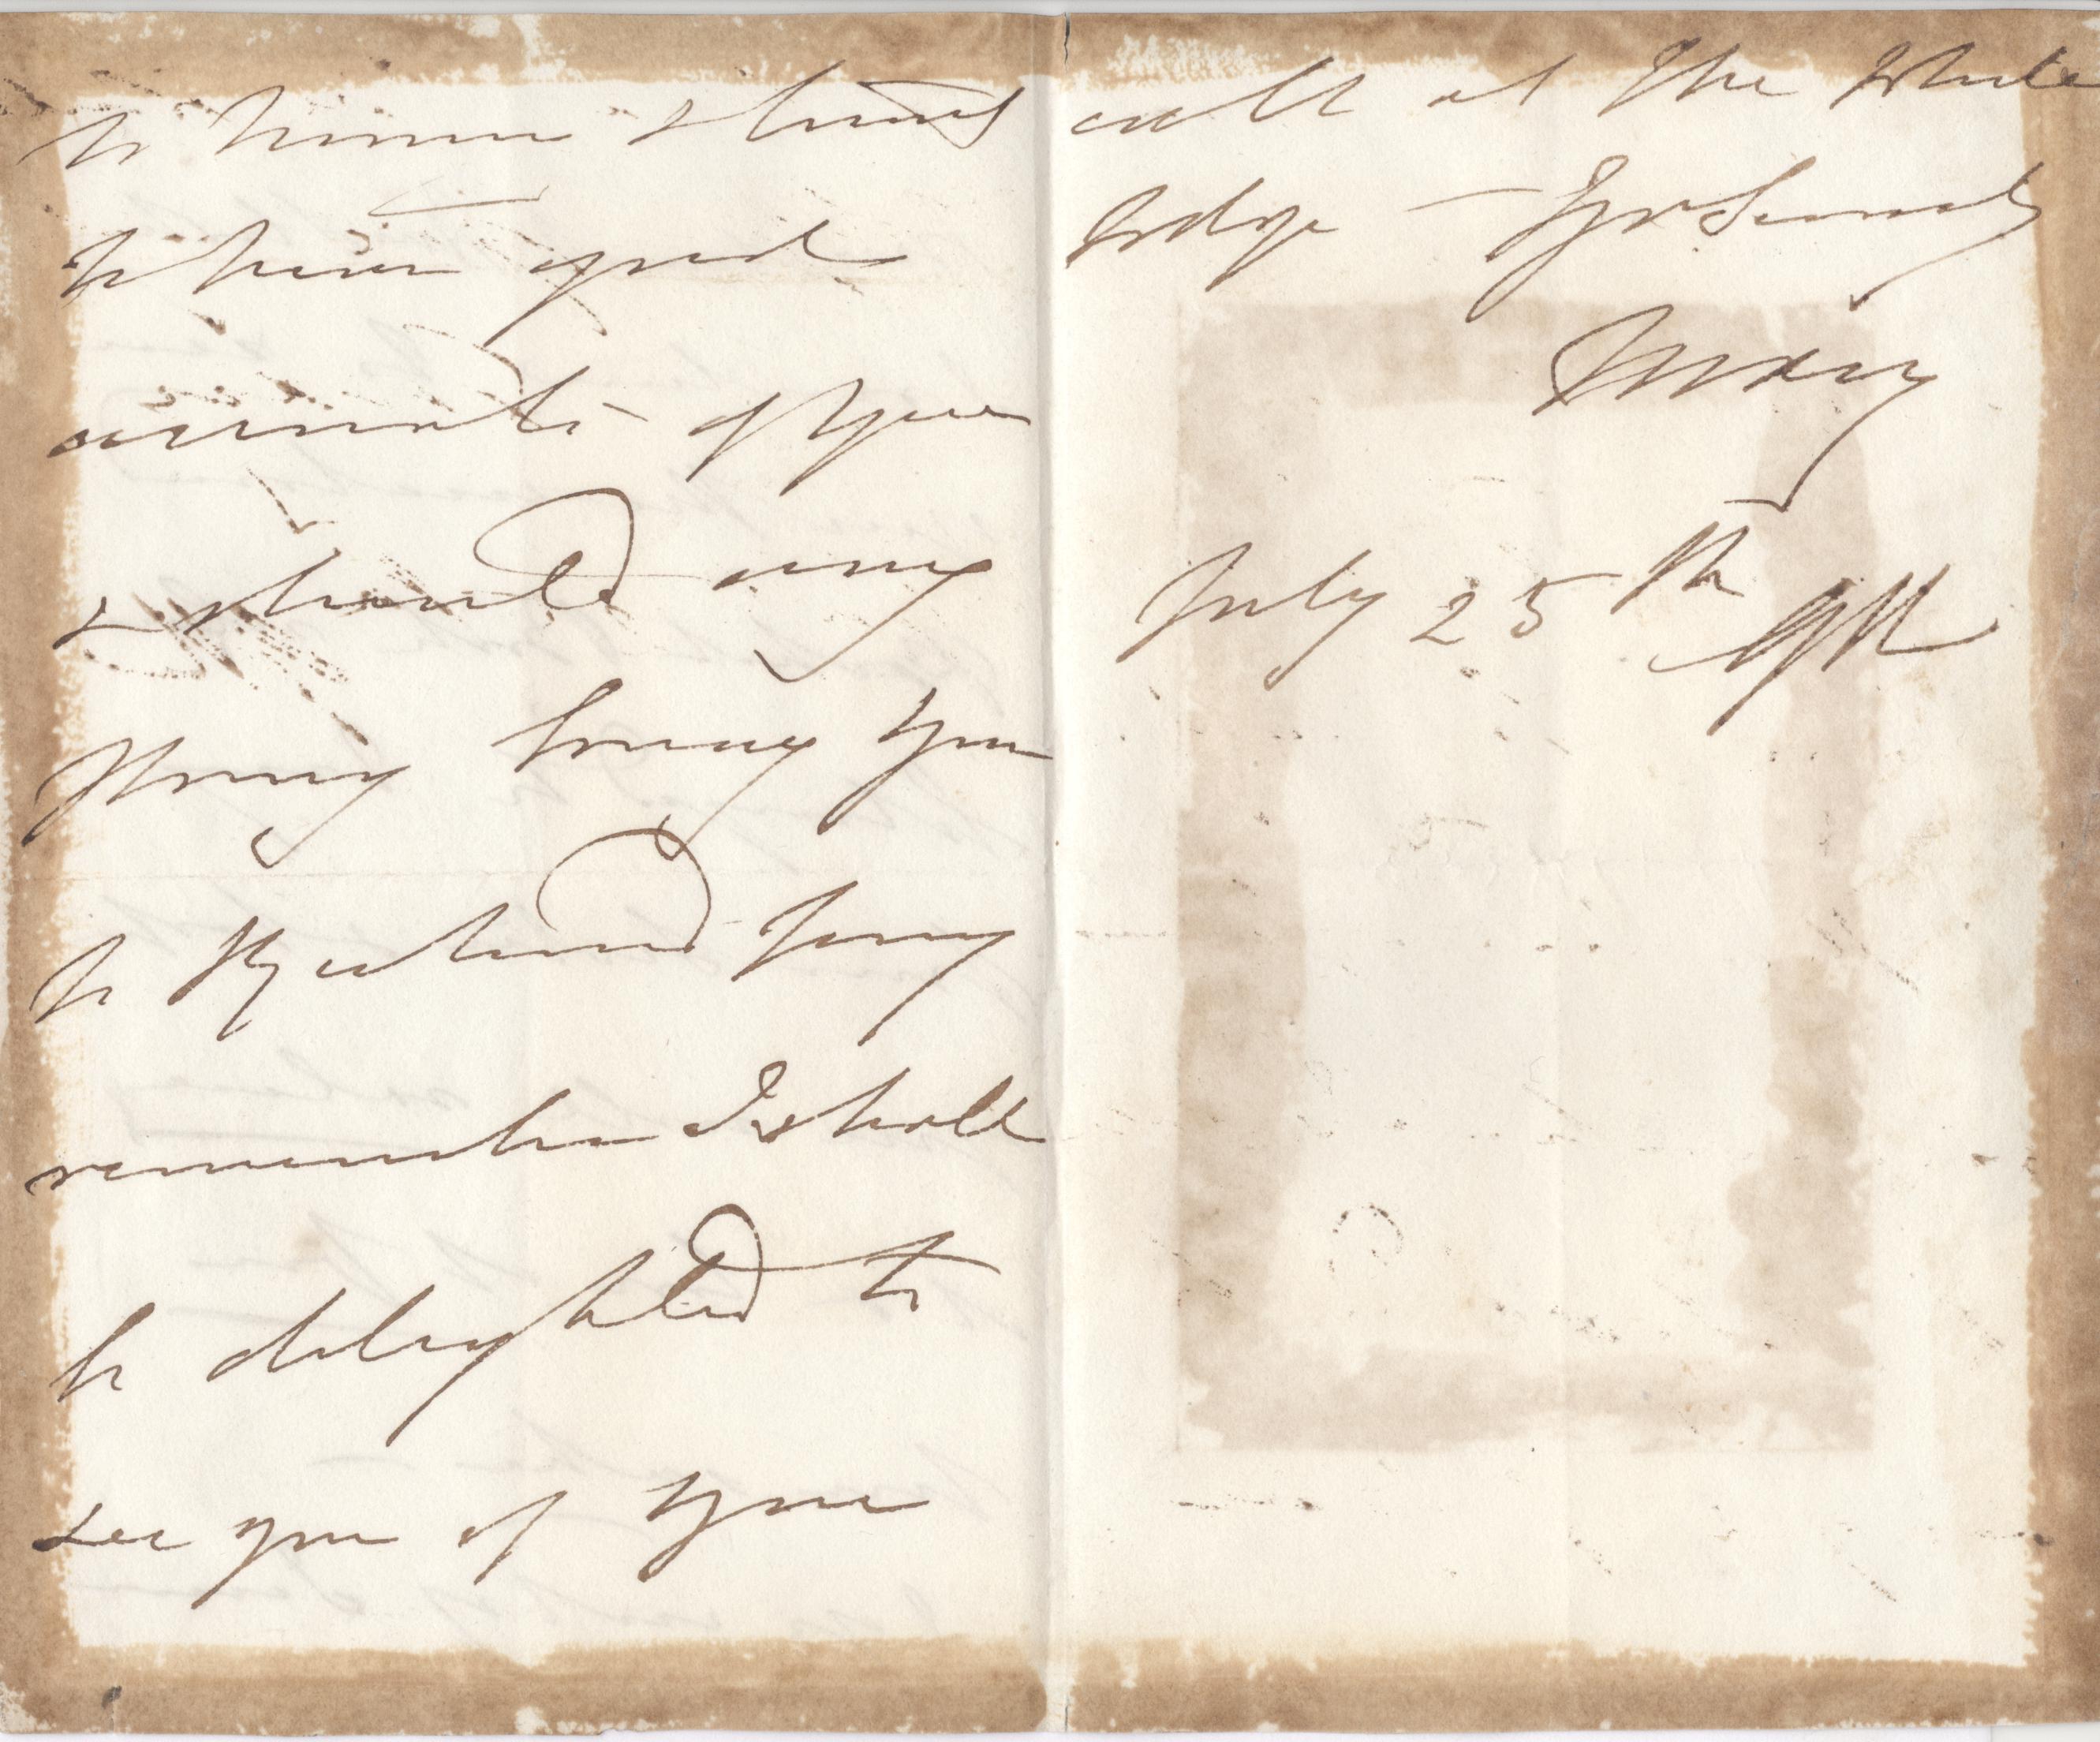 to
to hear good
accounts of you
& should any
thing bring you
to Richmond pray
remember I shall
be delighted to
see you if you
call at the White
Lodge — Yrs Sincerely
Mary
July 25th